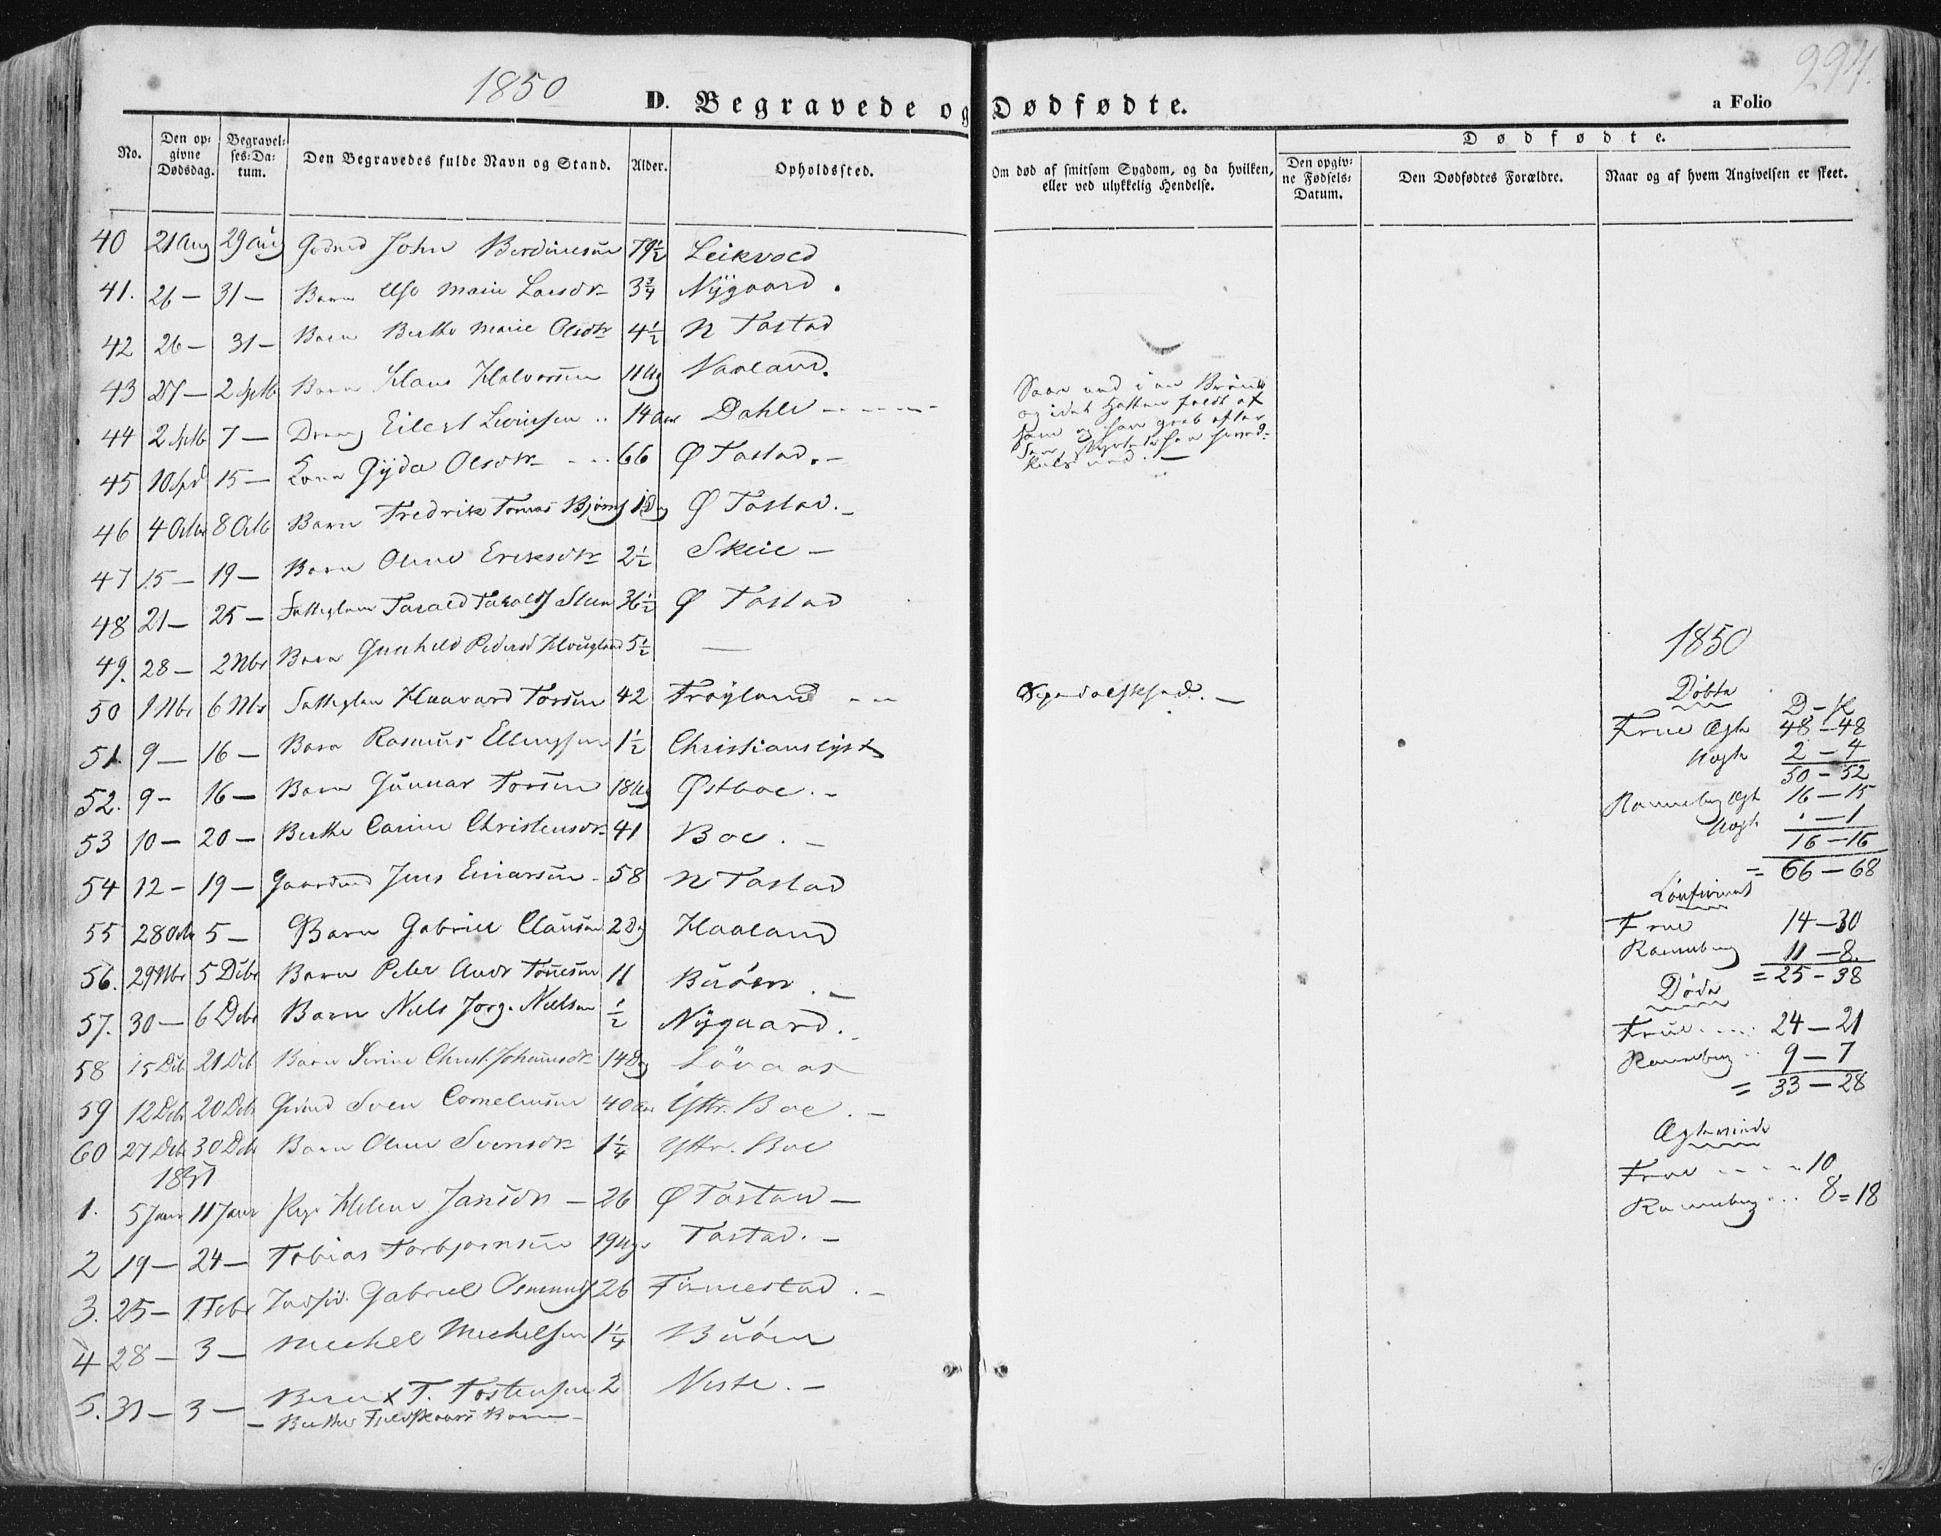 1850
294.
D. Begravede og Dødfødte.
a Folio
No.
Den opgivne Dødsdag.
Begravelses-Datum.
Den Begravedes fulde Navn og Stand.
Alder.
Opholdssted.
Om død af smitsom Sygdom, og da hvilken, eller ved ulykkelig Hendelse.
Dødfødte.
Den opgivne Fødsels-Datum.
Den Dødfødtes Forældre.
Naar og af hvem Angivelsen er skeet.
40 21 Aug 29 Aug John 79½ Leikvold
41. 26 — 31 — Barn Else Marie Larsdtr 3¾ Nÿgaard.
42 26 — 31 — Barn Berthe Marie Olsdtr 4½ N Tastad
43 27 — 2 Septb Barn Klaus Halvorsen 11 Ug Vaaland.
44 2 Septb 7 — Dreng Eilert .. 14 Aar Dahle - - - - -
og idet Hatten faldt af
ham og han greb efter
45 10 15 — Kone Gÿda Olsdtr - - . 66 Ø Tastad. —
46 4 Octbr 8 Octb Barn Fredrik Tomas 1 Dg Ø Tastad. —
47 15 — 19 — Barn Oline Eriksdtr 2½ Skeie —
48 21 — 25 — Tarald 36½ Ø Tastad
49. 28 — 2 Nbr Barn Gunhild Pedersd 5½ —
50 1 Nbr 6 Nbr Haavard Torsen 42 Frøyland - - Spedalskhed. —
51 9 — 16 — Barn Rasmus Ellingsen 1½ Christianslyst
52. 9 - 16 — Barn Gunnar Torsen 18 Ug Østboe. -
53 10 — 20 — Berthe Carine Christensdtr 41 Boe. —
54 12 - 19 — Gaardmd Jens Einarsen - 58 N Tastad
55 28 Octb 5 — Barn Gabriel Clausen 2 Dg Haaland
56. 29 Nbr 5 Dcbr Barn Peder Andr Tønnesen 11 Buøen. —
57. 30 — 6 Debr Barn Niels Jørg. Nielsen ½ Nÿgaard.
58 15 Deb 21 Deb Barn Serine Christ. Johannesdtr 14 Dg Løvaas
59 12 Debr 20 Debr Sven Corneliusen 40 Aar Yttr. Boe. —
60 27 Deb 30 Deb Barn Oline Svensdtr 1¼ Yttr. Boe
1851
1. 5 Janr 11 Janr Pige Helene Jansdtr — 26 Ø Tastad —
2 19 — 24 — Tobias Torbjørnsen 19 Ug. Tastad. —
3. 25 — 1 Febr Gabriel Osmunds 26 Finnestad. —
4 28 — 3 — Michel Michelsen 1¼ Buøen
5. 31 — 3 — Barn x T. Tostensen 2 Viste. —
— Berthe Barn —
1850
Døbte
D - K
Frue Ægte 48 — 48
Uægte 2 — 4
50 — 52
Ranneberg Ægt 16 — 15
Uægte . — 1
16 — 16
= 66 — 68
Confirmert
Frue 14 — 30
Ranneberg 11 — 8.
= 25 - 38
Døde
Frue. . . . 24 — 21
Ranneberg .. 9 — 7
= 33 — 28
Ægteviede
Frue - - - .. 10
Ranneberg . . . 8 = 18